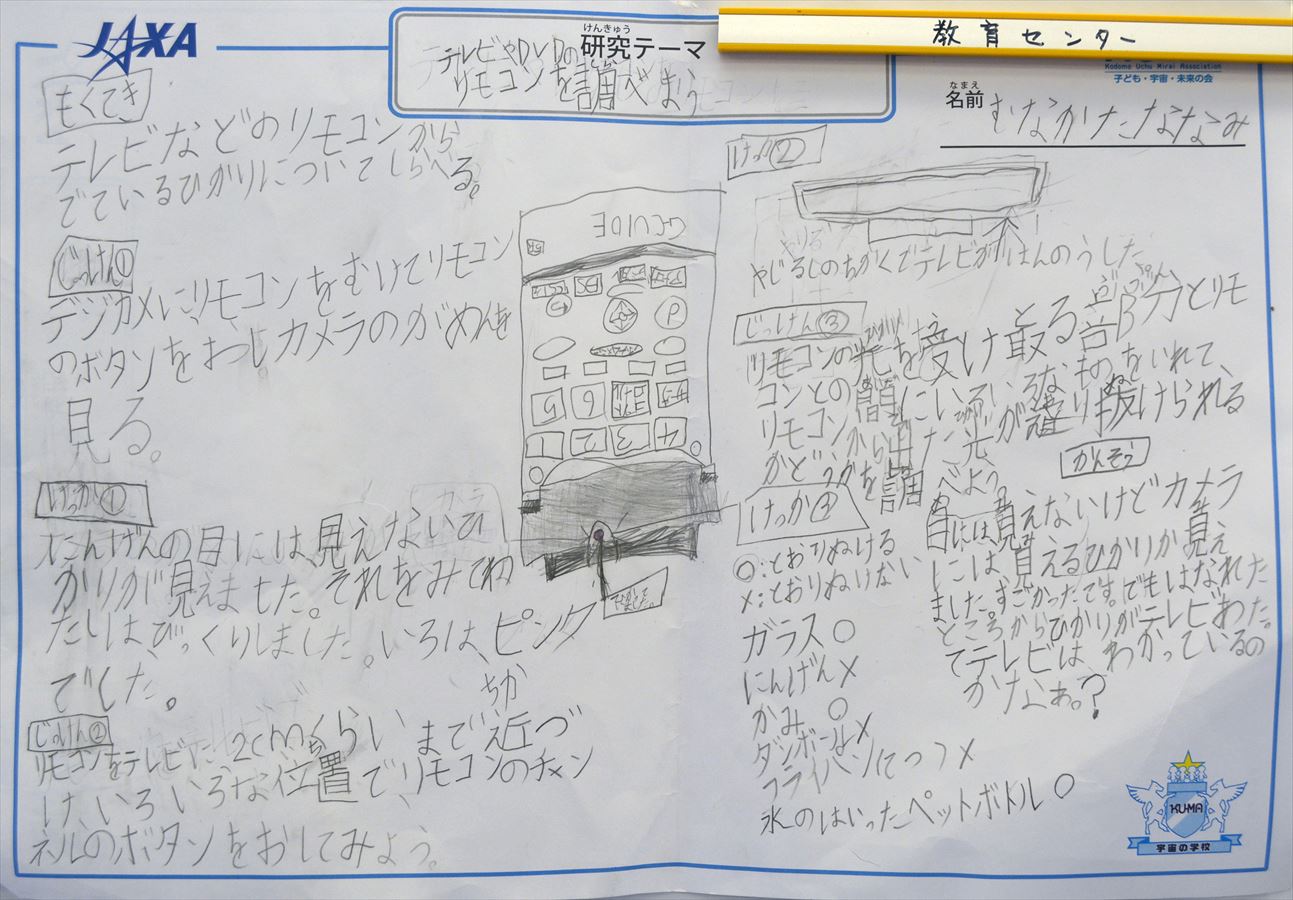 JAXA
けんきゅう
研究テーマ
テレビやDVDの
リモコンを調べよう
教育センター
Kodomo Uchu Mirai Association
子ども・宇宙・未来の会
なまえ
名前
むなかたななみ
もくてき
テレビなどのリモコンから
でているひかりについてしらべる。
じっけん①
デジカメにリモコンをむけてリモコン
のボタンをおしカメラのがめんを
見る。
けっか①
にんげんの目には、見えないひ
かりが見えました。それをみてわ
たしは、びっくりしました。いろは、ピンク
でした。
じっけん②
リモコンをテレビに、2cmくらいまで近づ
ちか
け、いろいろな位置で、リモコンのチャン
ネルのボタンをおしてみよう。
G-GUIDE
P
5
6
1
2
3
4
けっか②
やじるしのちかくでテレビがはんのうした
じっけん③
リモコンの光を受け取る部分とリモ
コンとの間にいろいろなものをいれて、
リモコンから出た光が通り抜けられる
かどうかを調べよう。
けっか③
○:とおりぬける
×:とおりぬけない
ガラス○
にんげん×
かみ○
ダンボール×
フライパン(てつ)×
水のはいったペットボトル○
かんそう
目には、見えないけどカメラ
には、見えるひかりが見え
ました。すごかったです。でもはなれた
ところからひかりがテレビわた。
てテレビは、わかっているの
かなぁ。?
KUMA
宇宙の学校